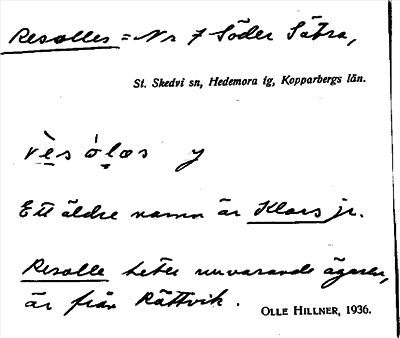 Resolles = Nr 7 Söder Sätra,
St. Skedvi sn, Hedemora tg, Kopparbergs län.
Ett äldre namn är Klars jr.
Resolle heter nuvarande ägaren,
är från Rättvik.
OLLE HILLNER, 1936.